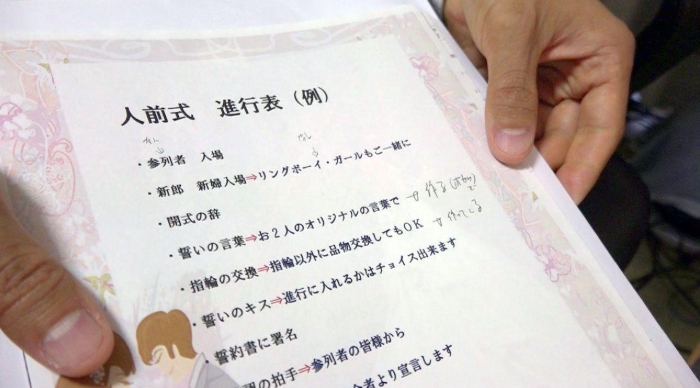 人前式　進行表（例）
・参列者　入場
・新郎　新婦入場⇒リングボーイ・ガールもご一緒に
・開式の辞
・誓いの言葉⇒お２人のオリジナルの言葉で → 作る
・指輪の交換⇒指輪以外に品物交換してもＯＫ → 作ってくる
・誓いのキス⇒進行に入れるかはチョイス出来ます
・誓約書に署名
の拍手⇒参列者の皆様から
より宣言します